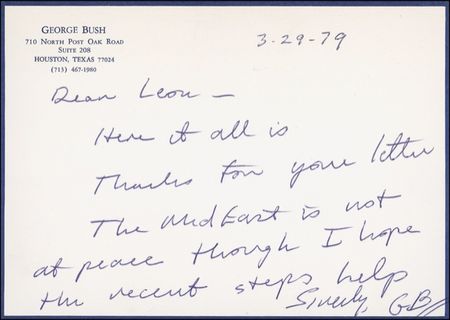 GEORGE BUSH
710 NORTH POST OAK ROAD
SUITE 208
HOUSTON, TEXAS 77024
(713) 467-1980
3-29-79
Dear Leon -
Here it all is
Thanks for your letter
The MidEast is not
at peace though I hope
the recent steps help
Sincerely, GB